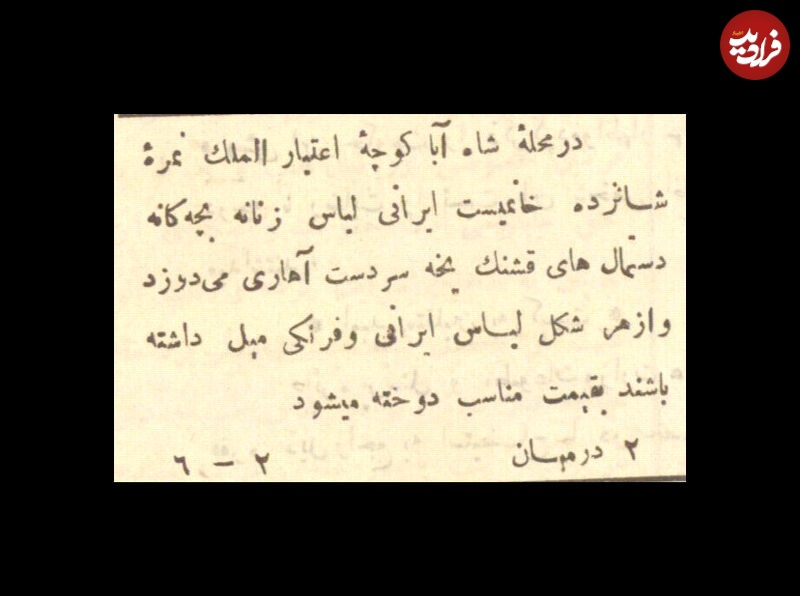 فرادید
اخبار
در محلهٔ شاه آبا کوچهٔ اعتبار الملك نمرهٔ
شانزده خانمیست ایرانی لباس زنانه بچه‌کانه
دستمال های قشنك یخه سردست آهاری می‌دوزد
و از هر شکل لباس ایرانی و فرنکی میل داشته
باشند بقیمت مناسب دوخته میشود
۲ درمیان ۲ — ۶